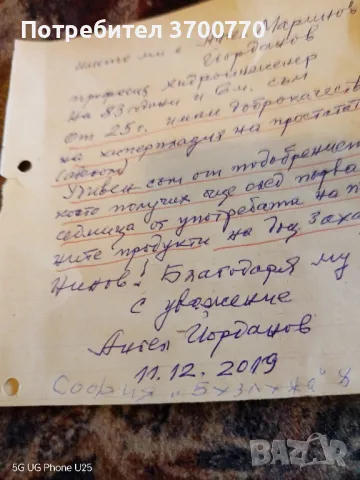 Потребител 3700770
името ми е Ангел Маринов
Йорданов
професия хидроинженер
на 83 години и 6 м. съм
От 25 г. имам доброкачеств
на хиперплазия на простата
Учивен съм от подобрението
което получих още след първа
седмица от употребата на п
ните продукти на Д-р Заха
Нинов! Благодаря му
С уважение
Ангел Йорданов
11.12.2019
София "Бузлуджа" 8
5G UG Phone U25
BAZAR